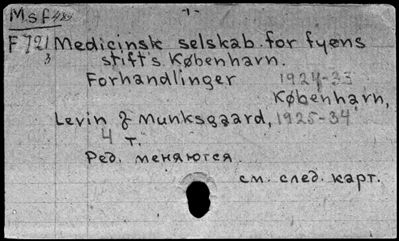 Msf
- 1 -
F 721
3
Medicinsk selskab for fyens
stift's København.
Forhandlinger 1924-33
København,
Levin & Munksgaard, 1925-34
4 т.
Ред. меняются
см. след. карт.